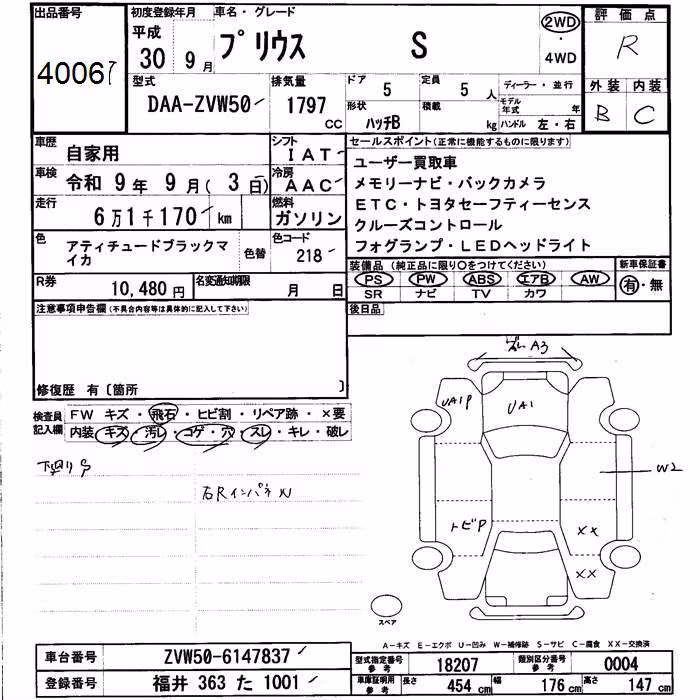 出品番号
4006
初度登録年月
平成
30 9月
車名・グレード
プリウス S
2WD
・
4WD
評価点
R
外装 内装
B C
型式
DAA-ZVW50
排気量
1797
CC
ドア
5
定員
5 人
形状
ハッチB
積載
kg
ディーラー・並行
モデル年式 年
ハンドル 左・右
車歴
自家用
シフト
IAT
車検
令和 9年 9月( 3日)
冷房
AAC
走行
6万1千170 km
燃料
ガソリン
色
アティチュードブラックマイカ
色替
色コード
218
R券
10,480 円
名変通知期限
月 日
セールスポイント(正常に機能するものに限ります)
ユーザー買取車
メモリーナビ・バックカメラ
ETC・トヨタセーフティーセンス
クルーズコントロール
フォグランプ・LEDヘッドライト
装備品(純正品に限り○をつけてください)
PS PW ABS エアB AW
SR ナビ TV カワ
新車保証書
有・無
後日品
注意事項申告欄(不具合内容等は具体的に記入して下さい)
修復歴 有〔箇所 〕
検査員記入欄
FW キズ・飛石・ヒビ割・リペア跡・×要
内装 キズ・汚レ・コゲ・穴・スレ・キレ・破レ
下廻りS
右Rインパネ W
ズレ A3
UA1P
UA1
W2
トビP
××
××
スペア
A-キズ E-エクボ U-凹み W-補修跡 S-サビ C-腐食 XX-交換済
車台番号
ZVW50-6147837
登録番号
福井 363 た 1001
型式指定番号
参考
18207
類別区分番号
参考
0004
車庫証明用
参考
長さ
454 cm
幅
176 cm
高さ
147 cm